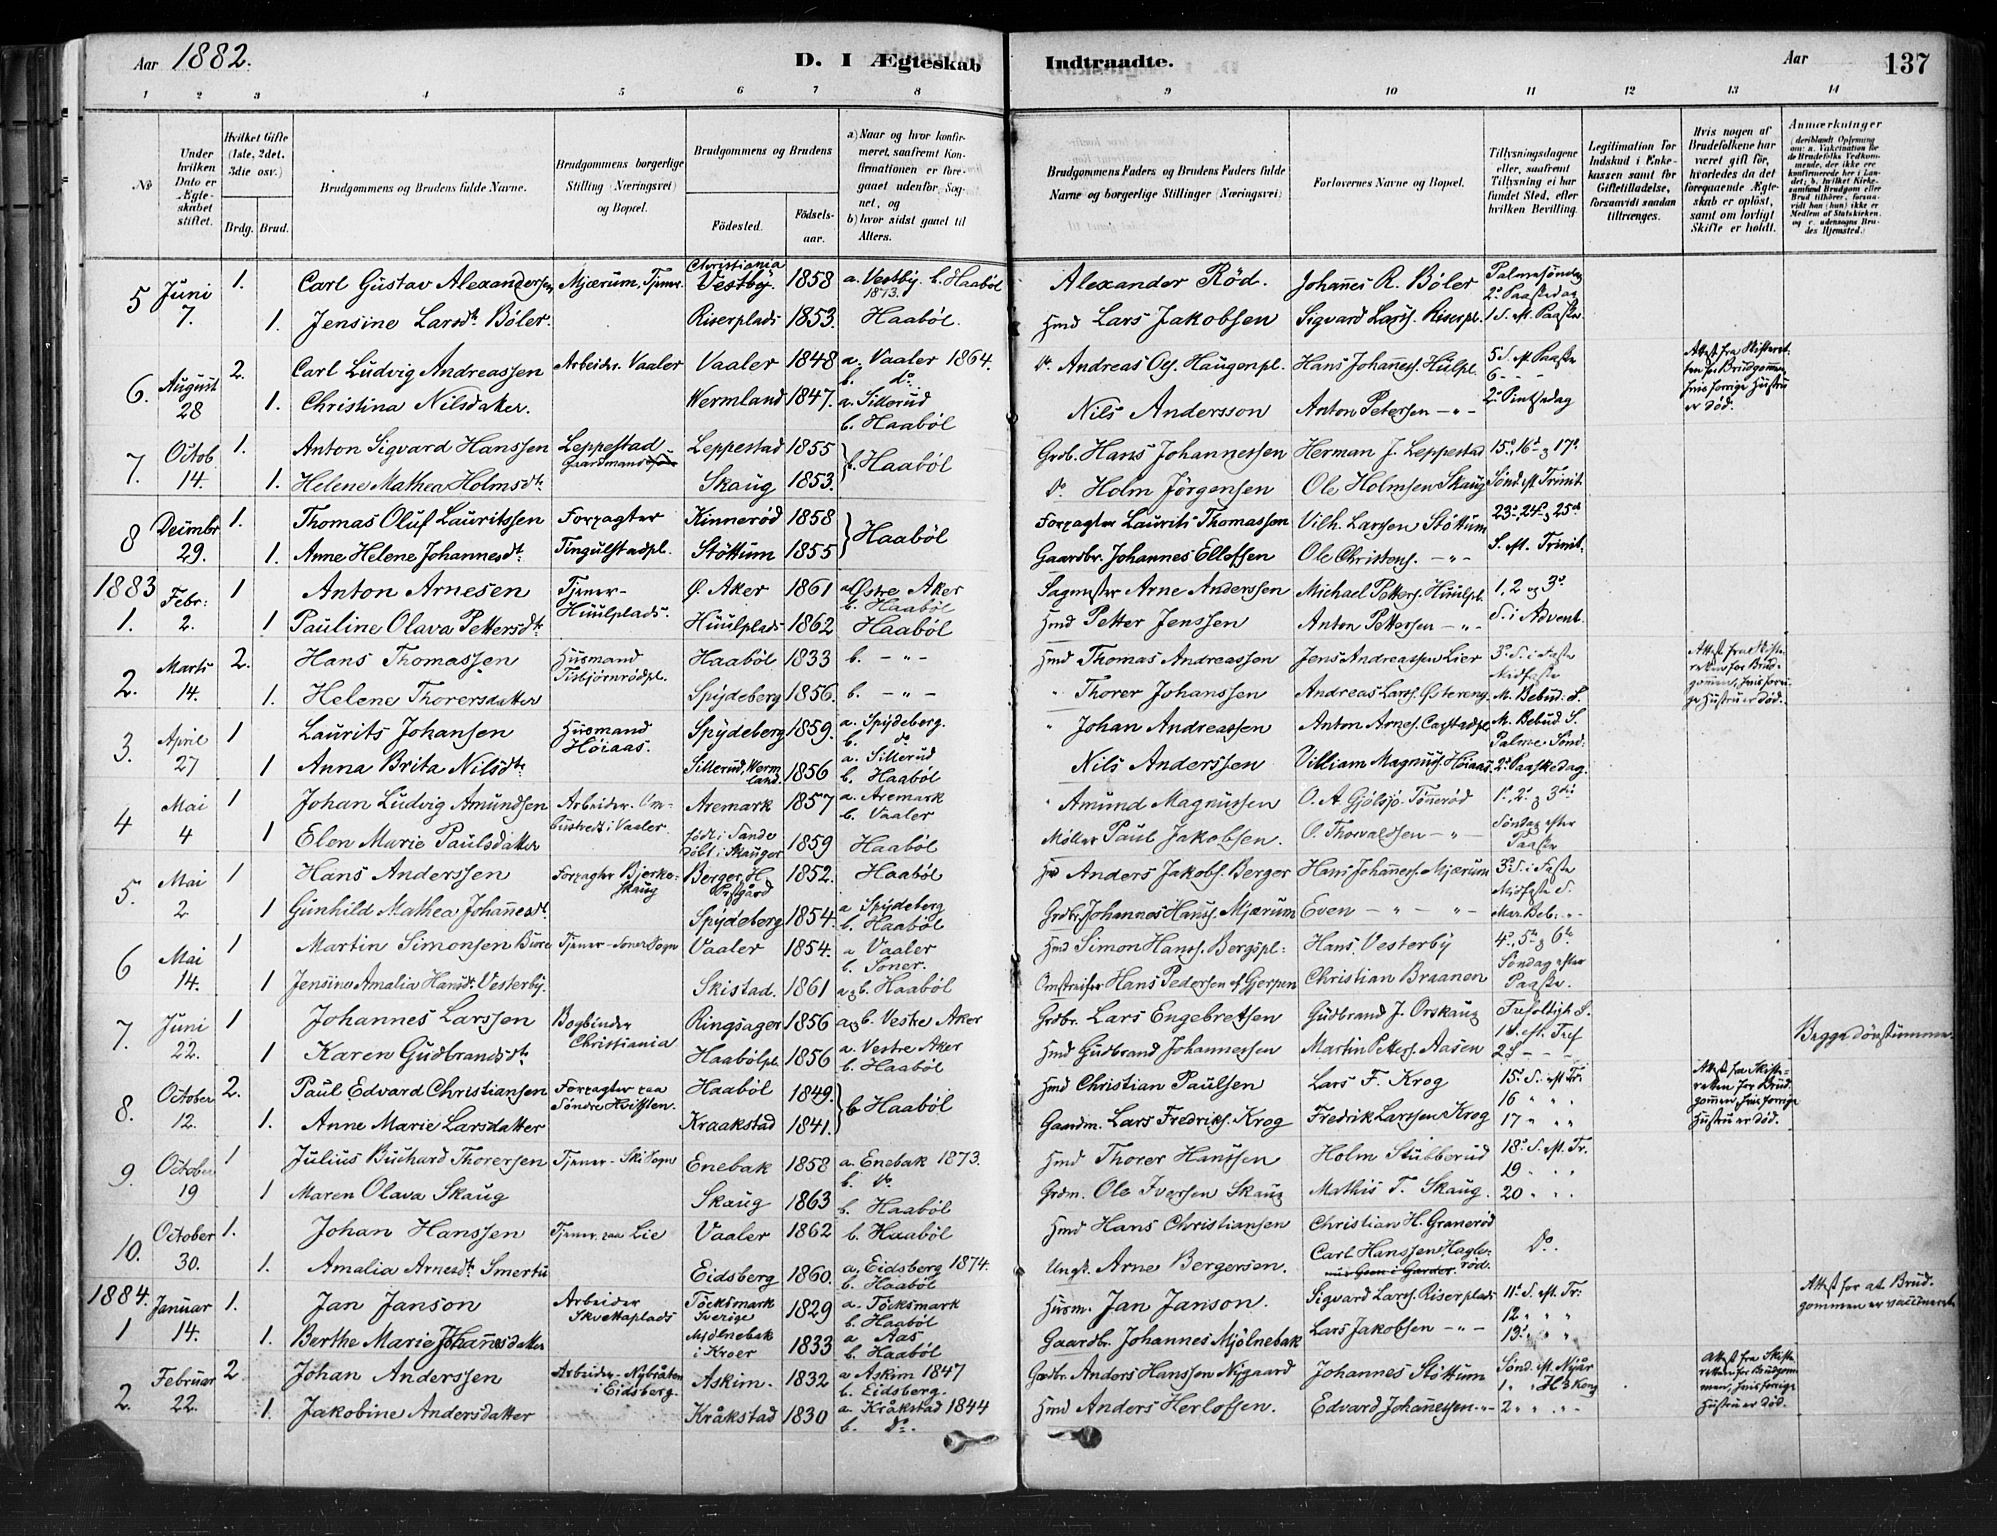 Aar 1882. D. I Ægteskab Indtraadte. Aar 137
1 2 3 4 5 6 7 8 9 10 11 12 13 14
No
Under hvilken Dato er Ægteskabet stiftet.
Hvilket Gifte (1ste, 2det, 3die osv.)
Brdg. Brud.
Brudgommens og Brudens fulde Navne.
Brudgommens borgerlige Stilling (Næringsvei) og Bopæl.
Brudgommens og Brudens
Födested. Födsels-aar.
a) Naar og hvor konfirmeret, saafremt Konfirmationen er foregaaet udenfor Sognet, og
b) hvor sidst gaaet til Alters.
Brudgommens Faders og Brudens Faders fulde Navne og borgerlige Stillinger (Næringsvei)
Forlovernes Navne og Bopæl.
Tillysningsdagene eller, saafremt Tillysning ei har fundet Sted, efter hvilken Bevilling.
Legitimation for Indskud i Enkekassen samt for Giftetilladelse, forsaavidt saadan tiltrænges.
Hvis nogen af Brudefolkene har været gift för, hvorledes da det foregaaende Ægteskab er oplöst, samt om lovligt Skifte er holdt.
Anmærkninger
5 Juni 7. 1. Carl Gustav Alexandersen Mjærum, Tjener. Christiania Vestby. 1858 a. Vestby 1873. b. Haaböl Alexander Röd. Johañes R. Böler Palmesöndag 2. Paaskedag
1. Jensine Larsdt. Böler. Riserplads 1853. Haaböl. Hmd Lars Jakobsen Sigvard Larss. Riserpl. 1 S. eft. Paaske
6. August 28 2. Carl Ludvig Andreassen Arbeider. Vaaler Vaaler 1848 a. Vaaler 1864. b. do. Do. Andreas Ols. Haugenpl. Hans Johañess. Hulpl. 5 S. eft. Paaske 6 - - - Attest fra Skifteretten for Brudgommen, hvis forrige Hustru er död.
1. Christina Nilsdatter. Wermland 1847. a. Sillerud b. Haaböl Nils Andersson Anton Petersen -"- 2. Pintsedag
7. Octob 14. 1. Anton Sigvard Hanssen Leppestad Gaardmand Leppestad 1855 b. Haaböl Grdb. Hans Johannessen Herman J. Leppestad 15., 16. & 17.
1. Helene Mathea Holmsdt. Skaug 1853. Do. Holm Jörgensen Ole Holmsen Skaug Sönd. eft. Trinit.
8 Decembr 29. 1. Thomas Oluf Lauritssen Forpagter Kinneröd 1858 Haaböl Forpagter Laurits Thomassen Vilh. Larssen Stöttum 23., 24. & 25de
1. Anne Helene Johannesdt. Tingulstadpl. Stöttum 1855 Gaardbr. Johannes Ellefsen Ole Christens. -"- S. eft. Trinit.
1883 1. Febr: 2. 1 Anton Arnesen Tjener- Huulplads. Ø. Aker 1861 a. Østre Aker b. Haaböl Sagmester Arne Anderssen Michael Petters. Huulpl. 1, 2 og 3.
1 Pauline Olava Pettersdt. Huulplads 1862 Haaböl Hmd Petter Jenssen Anton Pettersen -"- S. i Advent.
2. Marts 14. 2. Hans Thomassen Husmand Tisbjörnrödpl. Haaböl 1833 b. -"- Hmd Thomas Andreassen Jens Andreassen Lier 3. S. i Faste Midfaste Attest fra Skifteretten for Brudgommen, hvis forrige Hustru er död.
1. Helene Thorersdatter Spydeberg 1856. b. -"- " Thorer Johanssen Andreas Larss. Østereng. M. Bebud: S.
3. April 27 1 Laurits Johansen Husmand Höiaas. Spydeberg 1859. a. Spydeberg. b. do. " Johan Andreassen Anton Arnes. Carstadpl. M. Bebud S. Palme Sönd:
1 Anna Brita Nilsdt. Sillerud, Wermland. 1856 a. Sillerud b. Haaböl Nils Anderssen Villiam Magnus. Höiaas 2. Paaskedag.
4 Mai 4 1 Johan Ludvig Amundsen Arbeider. i Vaaler. Aremark 1857 a. Aremark b. Vaaler " Amund Magnussen O. A. Gjölsjö. Tönneröd 1., 2. & 3die
1 Elen Marie Paulsdatter födt i Sande döbt i Skauger 1859 Haaböl Möller Paul Jakobsen. O. Thorvaldsen -"- Söndag efter Paaske
5. Mai 2 1 Hans Anderssen Forpagter Bjerkeskaug Berger, H 1852. Haaböl Anders Jakobs. Berger Hans Johañess. Mjærum 3. S. i Faste Midfaste S.
1 Gunhild Mathea Johañesdt. Spydeberg 1854. a Spydeberg b. Haaböl Grdbr. Johannes Hanss. Mjærum Even -"- -"- Mar. Beb: -
6 Mai 14. 1 Martin Simonsen Bure Tjener - Soner Sogn Vaaler 1854. a Vaaler b. Soner. Hmd Simon Hanss. Bergspl: Hans Vesterby 4., 5te & 6te Söndag efter
1 Jensine Amalia Hansdt. Vesterby. Skistad. 1861 a & b. Haaböl Omstreifer Hans Pedersen af Gjerpen Christian Braanen Paaske.
7. Juni 22. 1 Johannes Larssen Bogbinder Christiania Ringsager 1856 a & b. Vestre Aker Grdbr. Lars Engebretsen Gudbrand J. Orskaug Trefoldigh. S. 1 S. eft. Tref Begge dövstumme.
1 Karen Gudbrandsdt. Haabölpl. 1856 a. Vestre Aker b. Haaböl Hmd Gudbrand Johannessen Martin Petters. Aasen 2 S - - -
8. October 12. 2. Paul Edvard Christiansen Forpagter paa Söndre Hvitsten. Haaböl 1849. b. Haaböl Hmd Christian Paulsen Lars F. Krog 15. S. eft Tr: 16 " " " Attest fra Skifteretten for Brudgommen, hvis forrige Hustru er död.
1. Anne Marie Larsdatter Kraakstad 1841. Gaardm. Lars Fredriks. Krog Fredrik Larssen Krog 17 " " "
9. October 19 1 Julius Buchard Thorersen Tjener - Ski Sogn Enebak 1858 a. Enebak 1873. b. Do. Hmd Thorer Hanssen Holm Stubberud 18. S. eft. Tr. 19 " "
1 Maren Olava Skaug Skaug 1863 b. Haaböl Grdm. Ole Iversen Skaug Mathis T. Skaug. 20 " "
10. October 30. 1. Johan Hanssen Tjener paa Lie Vaaler 1862 b. Haaböl Hmd Hans Christiansen Christian H. Graneröd Do.
1. Amalia Arnesdt. Smertu Eidsberg 1860. a. Eidsberg 1874. b. Haaböl Ungk. Arne Bergersen. Carl Hanssen Hagleröd.
1884. 1 Januar 14. 1. Jan Janson Arbeider Skvettaplads Töcksmark Sverige 1829 a. Töcksmark b. Haaböl Husm. Jan Janson. Sigvard Larss. Riserplads 11. S. eft. Tr: 12 " " Attest for at Brudgommen er vaccineret
1. Berthe Marie Johañesdatter Mjölnebak i Kroer 1833 a Aas b. Haaböl Gaardbr. Johannes Mjölnebak Lars Jakobsen -"- 13. " "
2. Februar 22. 2. Johan Anderssen Arbeider - Nybråten i Eidsberg. Askim. 1832 a Askim 1847 b. Eidsberg. Grdbr. Anders Hanssen Nygaard Johannes Stöttum Sönd. eft. Nyår 1 " " H 3 Kong Attest fra Skifteretten for Brudgommen, hvis forrige Hustru er död.
1. Jakobine Andersdatter Kråkstad 1830 a. Kråkstad 1844 b. Do. Hmd Anders Herlofsen. Edvard Johañessen -"- 2 " " -